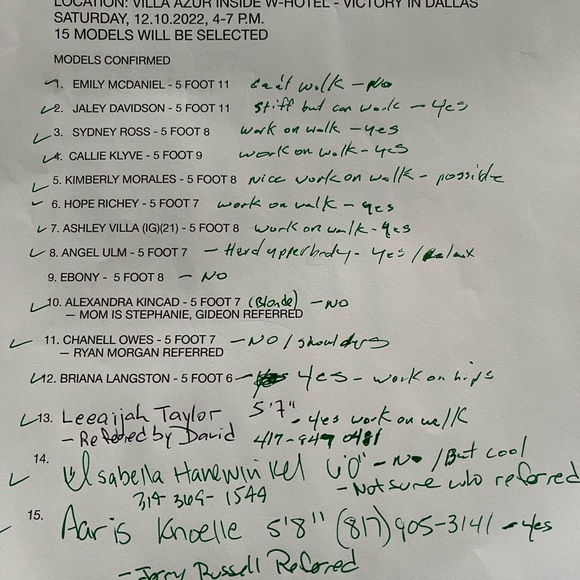 LOCATION: VILLA AZUR INSIDE W-HOTEL - VICTORY IN DALLAS
SATURDAY, 12.10.2022, 4-7 P.M.
15 MODELS WILL BE SELECTED
MODELS CONFIRMED
1. EMILY MCDANIEL - 5 FOOT 11 can't walk - No
2. JALEY DAVIDSON - 5 FOOT 11 stiff but can work - Yes
3. SYDNEY ROSS - 5 FOOT 8 work on walk - yes
4. CALLIE KLYVE - 5 FOOT 9 work on walk - yes
5. KIMBERLY MORALES - 5 FOOT 8 Nice work on walk - possible
6. HOPE RICHEY - 5 FOOT 7 work on walk - yes
7. ASHLEY VILLA (IG)(21) - 5 FOOT 8 work on walk - yes
8. ANGEL ULM - 5 FOOT 7 - Hard upper body - yes / Relax
9. EBONY - 5 FOOT 8 - NO
10. ALEXANDRA KINCAD - 5 FOOT 7 (Blonde) - NO
— MOM IS STEPHANIE, GIDEON REFERRED
11. CHANELL OWES - 5 FOOT 7 - NO / shoulders
— RYAN MORGAN REFERRED
12. BRIANA LANGSTON - 5 FOOT 6 - Yes - work on hips
13. Leeaijah Taylor 5'7" - yes work on walk
- Refered by David 417-849 0481
14. Isabella Hanewinkel 6'0" - No / But cool
314-369-1544 - Not sure who referred
15. Aaris Knoelle 5'8" (817) 905-3141 - yes
- Jerry Russell Refered